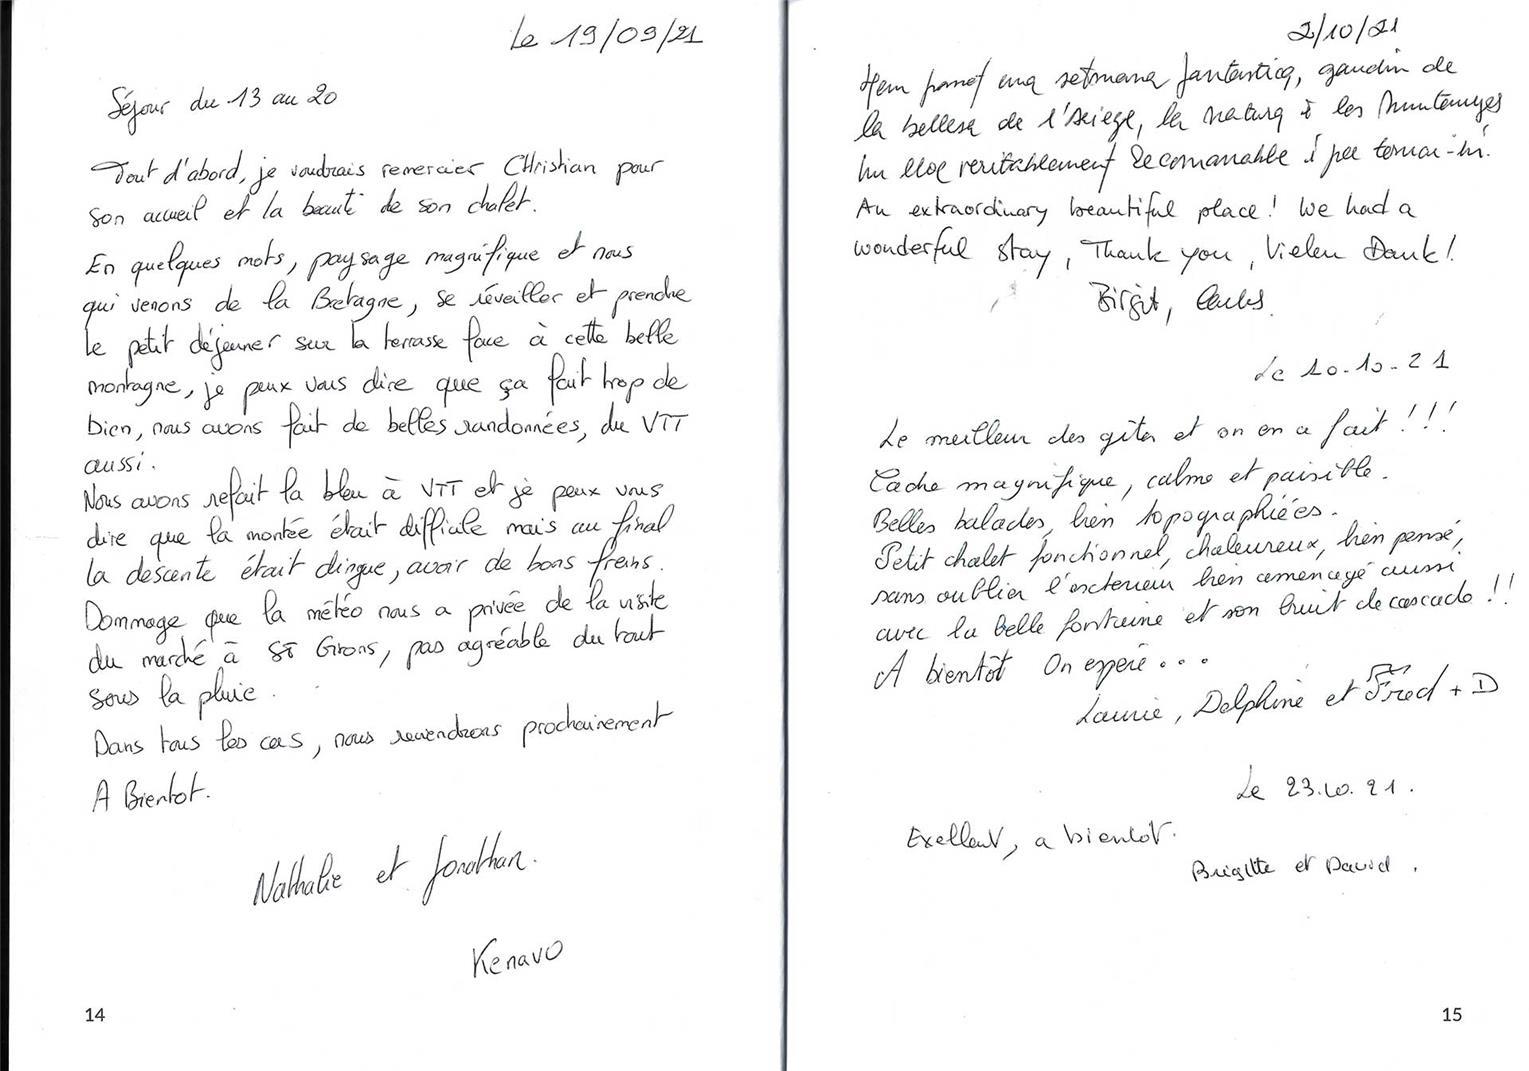 Le 19/09/21
Séjour du 13 au 20
Tout d'abord, je voudrais remercier CHristian pour
son accueil et la beauté de son chalet.
En quelques mots, paysage magnifique et nous
qui venons de la Bretagne, se réveiller et prendre
le petit déjeuner sur la terrasse face à cette belle
montagne, je peux vous dire que ça fait trop de
bien, nous avons fait de belles randonnées, du VTT
aussi.
Nous avons refait la bleu à VTT et je peux vous
dire que la montée était difficile mais au final
la descente était dingue, avoir de bons freins.
Dommage que la météo nous a privée de la visite
du marché à St Girons, pas agréable du tout
sous la pluie.
Dans tous les cas, nous reviendrons prochainement
A Bientot.
Nathalie et Jonathan.
Kenavo
14
2/10/21
Hem passat una setmana fantastica, gaudin de
la bellesa de l'Ariege, la natura i les Muntanyes
Un lloc veritablement Recomanable i per tornar-hi.
An extraordinary beautiful place! We had a
wonderful stay, Thank you, Vielen Dank!
Birgit, Carles.
Le 10-10-21
Le meilleur des gîtes et on en a fait!!!
Cadre magnifique, calme et paisible.
Belles balades, bien topographiées.
Petit chalet fonctionnel, chaleureux, bien pensé,
sans oublier l'exterieur bien amenagé aussi
avec la belle fontaine et son bruit de cascade!!
A bientôt On espere...
Laurie, Delphine et Fred + D
Le 23.10.21.
Exellent, a bientot.
Brigitte et David.
15